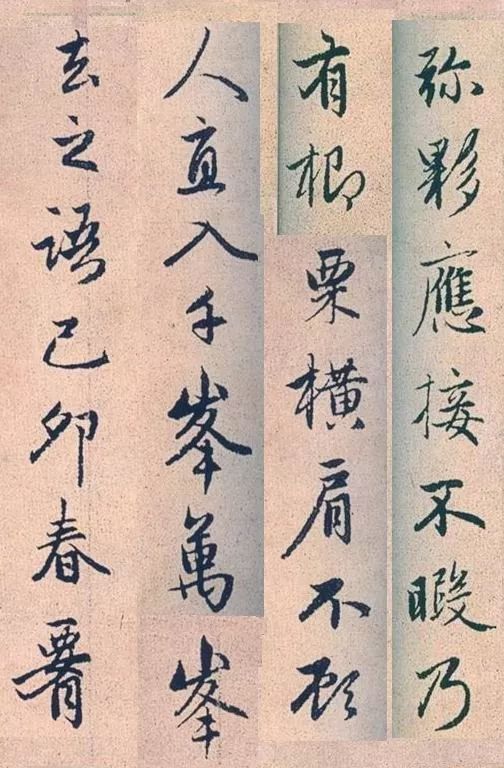 弥夥應接不暇乃
有楖栗橫肩不顧
人直入千峯萬峯
去之語己卯春